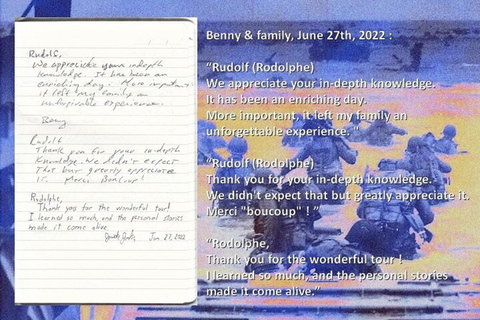 Rudolf,
We appreciate your indepth
knowledge. It has been an
enriching day. More important
it left my family an
experience.
Benny
Rudolf
Thank you for your in-depth
knowledge. We didn't expect
that but greatly appreciate
it. Merci Boucoup!
Rodolphe,
Thank you for the wonderful tour!
I learned so much, and the personal stories
made it come alive.
Jun 27, 2022
Benny & family, June 27th, 2022 :
“Rudolf (Rodolphe)
We appreciate your in-depth knowledge.
It has been an enriching day.
More important, it left my family an
unforgettable experience. "
“Rudolf (Rodolphe)
Thank you for your in-depth knowledge.
We didn't expect that but greatly appreciate it.
Merci "boucoup" ! ”
“Rodolphe,
Thank you for the wonderful tour !
I learned so much, and the personal stories
made it come alive.”